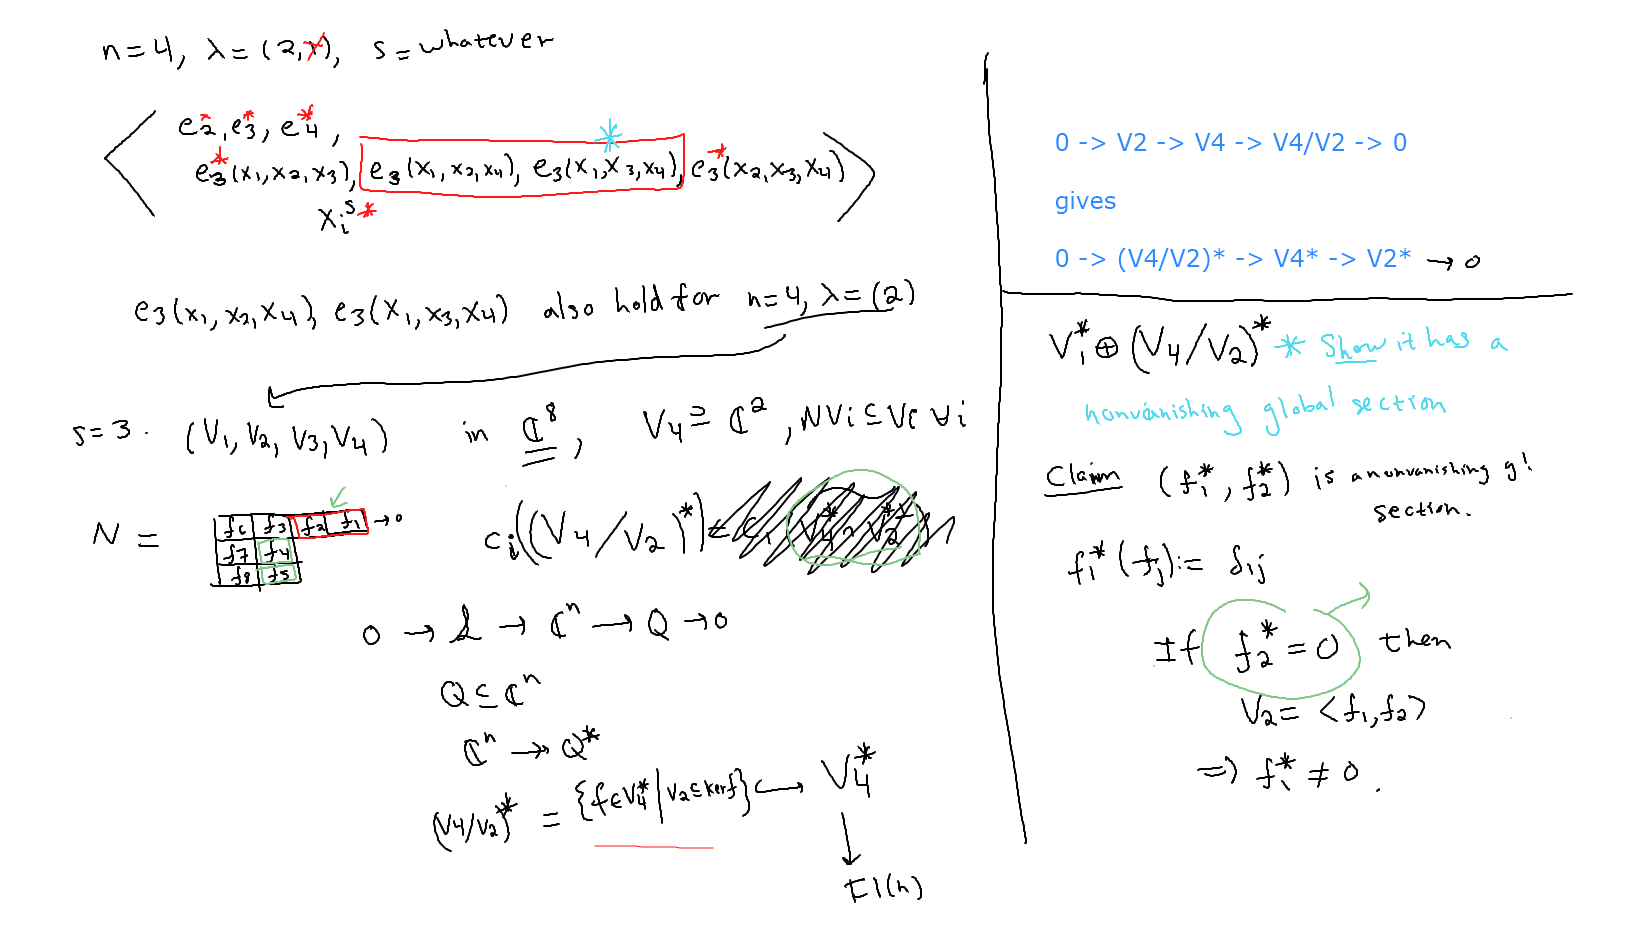 n=4, λ=(2,1), s=whatever
e2*, e3*, e4*,
e3*(x1,x2,x3), e3(x1,x2,x4), e3(x1,x3,x4), e3*(x2,x3,x4)
*
xi^s *
e3(x1,x2,x4), e3(x1,x3,x4) also hold for n=4, λ=(2)
s=3. (V1, V2, V3, V4) in ℂ^8, V4 ⊇ ℂ^2, NVi ⊆ Vi ∀i
N =
f6 f3 f2 f1 → 0
f7 f4
f8 f5
ci((V4/V2)*) =
0 → 𝓛 → ℂ^n → Q → 0
Q ⊆ ℂ^n
ℂ^n ↠ Q*
(V4/V2)* = {f∈V4* | V2⊆kerf} ↪ V4*
↓
Fl(n)
0 -> V2 -> V4 -> V4/V2 -> 0
gives
0 -> (V4/V2)* -> V4* -> V2* → 0
V1* ⊕ (V4/V2)* * Show it has a
nonvanishing global section
Claim (f1*, f2*) is a nonvanishing gl
section.
fi*(fj) := δij
If f2* = 0 then
V2 = <f1, f2>
⇒ f1* ≠ 0.